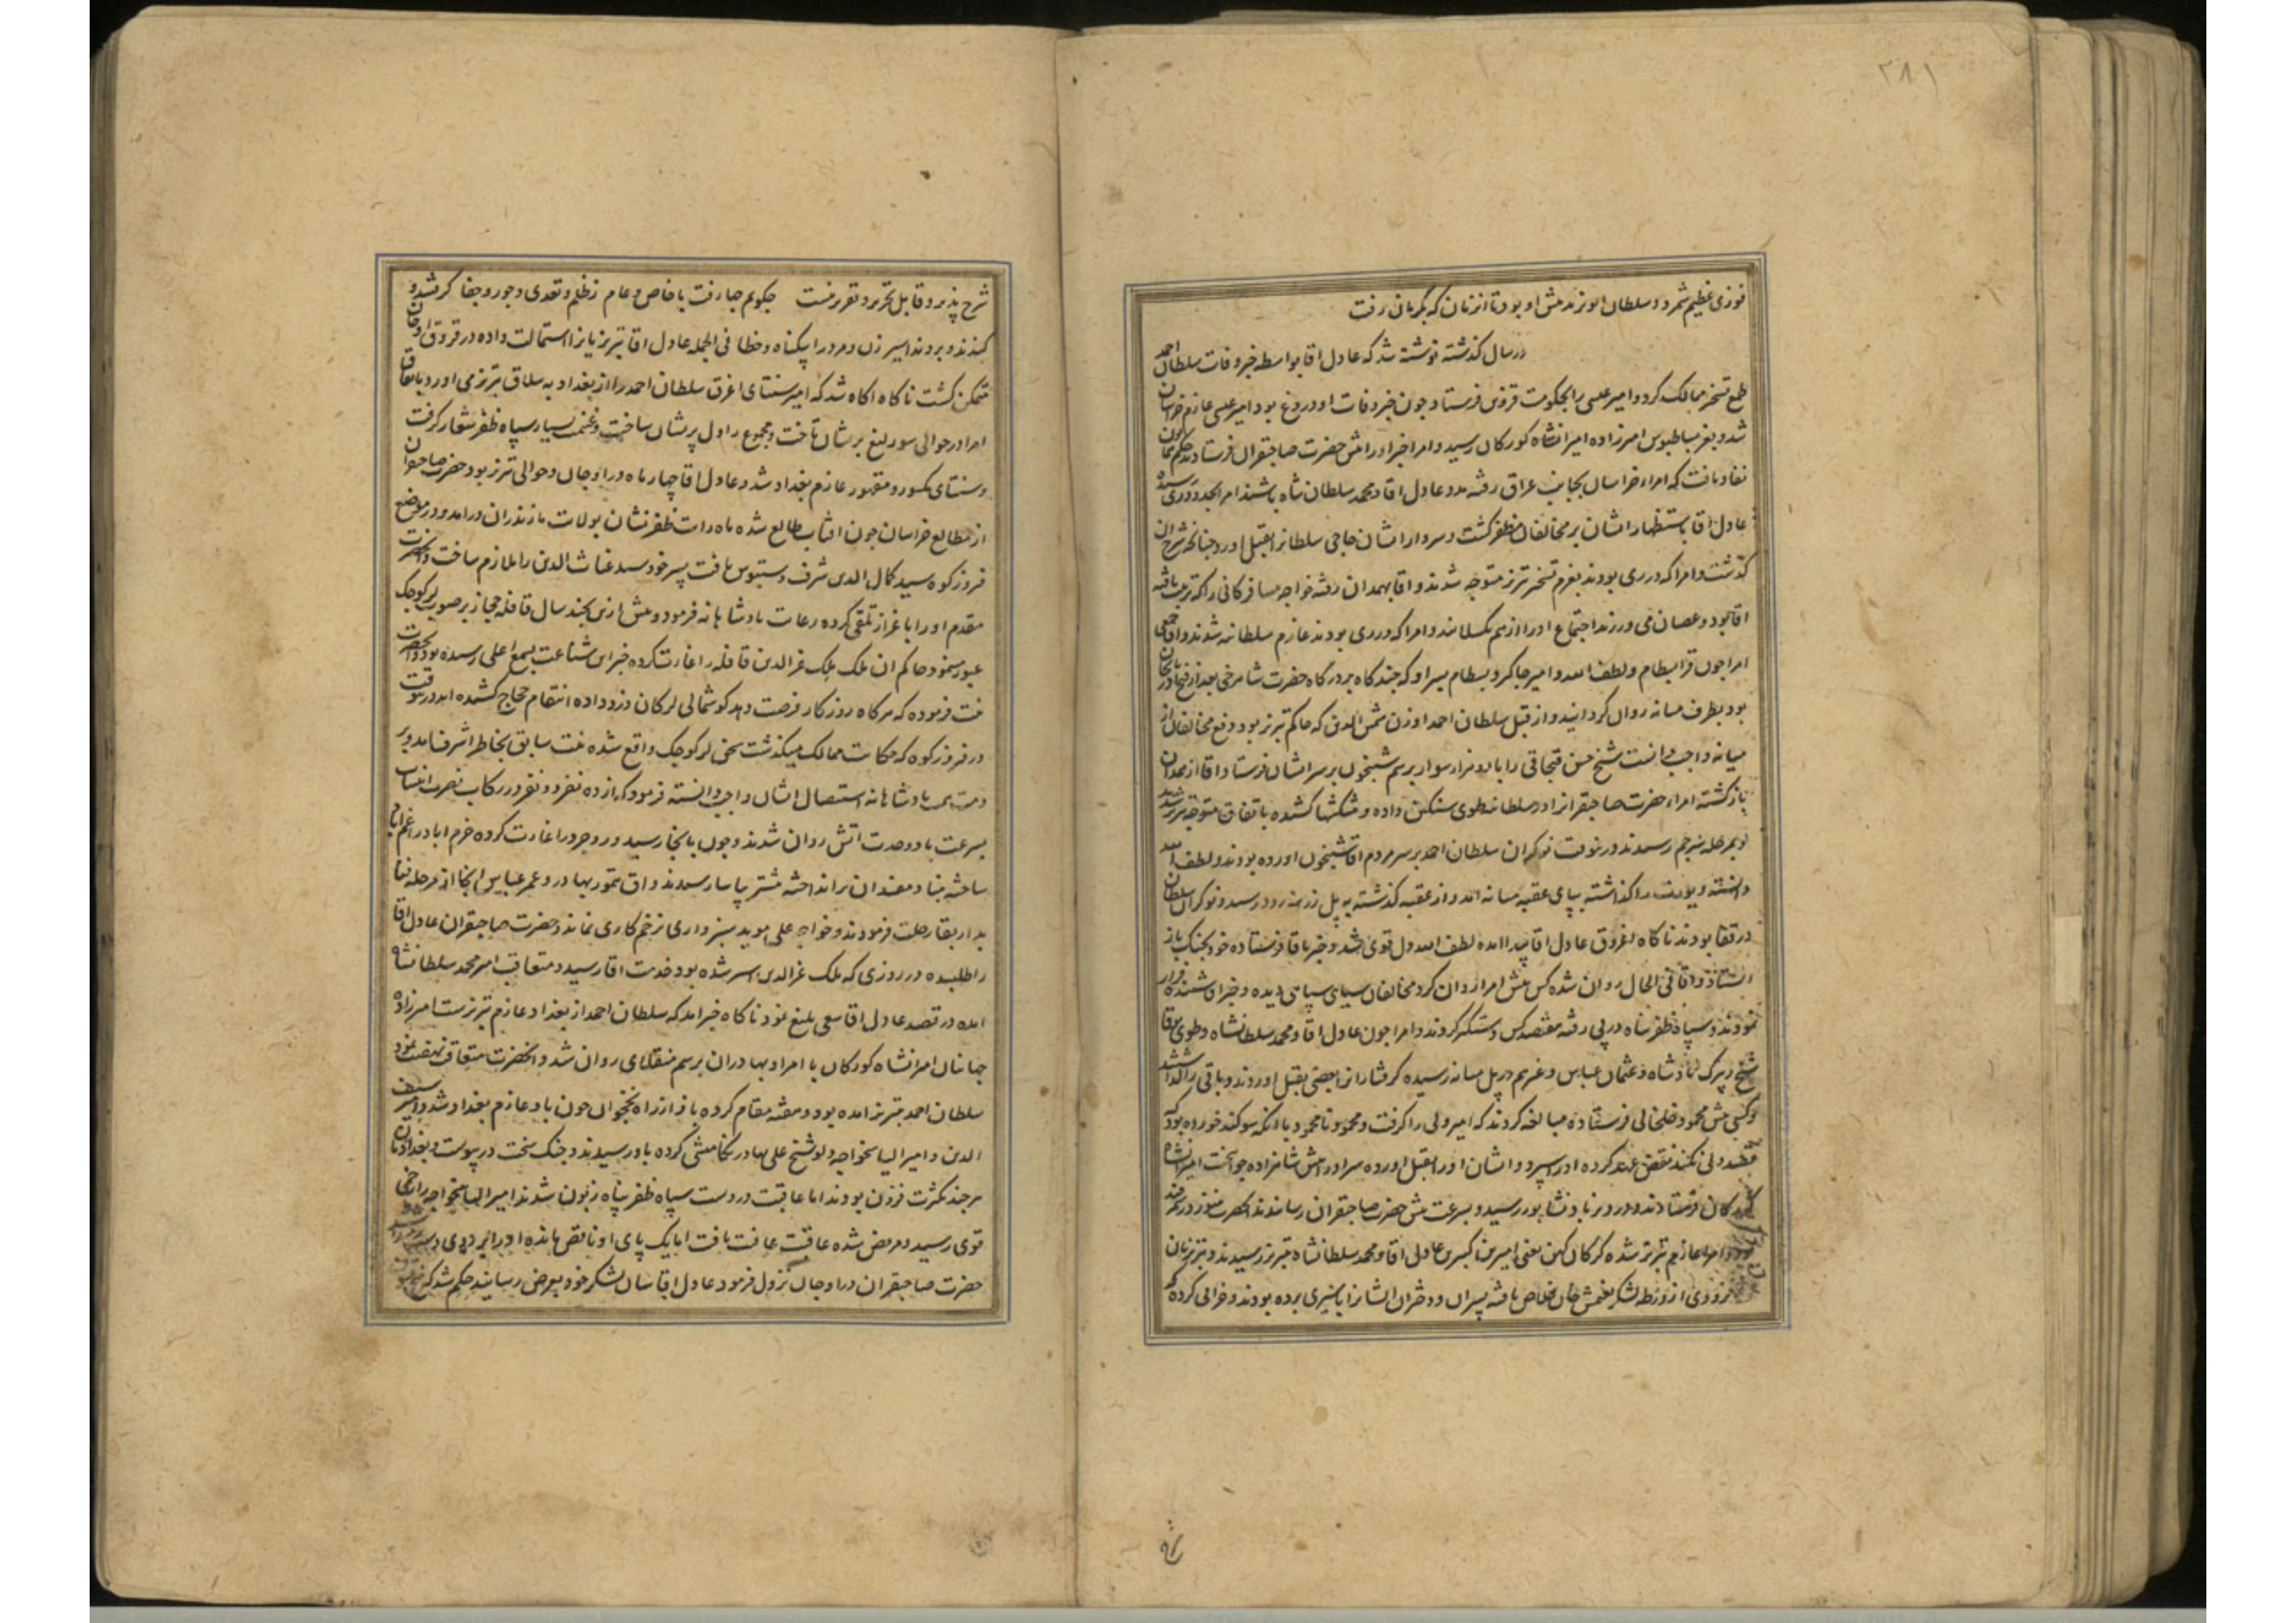 ۲۸۱
فوزی عظیم شمرد و سلطان ابویزید پیش او بود تا از زمان که بکرمان رفت
در سال کذشته نوشته شد که عادل اقا بواسطه خبر وفات سلطان احمد
طمع تسخیر ممالک کرد و امیر عیسی را بحکومت قزوین فرستاد چون خبر وفات او دروغ بود امیر عیسی عازم خراسان
شد و بعز بساطبوس امیرزاده امیرانشاه کورکان رسید و امرا خبر او را پیش حضرت صاحبقران فرستادند حکم همایون
نفاد یافت که امراء خراسان بجانب عراق رفته مدد عادل اقا و محمد سلطان شاه باشند امرا بحدود ری رسیده
عادل اقا باستظهار ایشان بر مخالفان مظفر کشت و سردار ایشان حاجی سلطانرا بقتل اورد چنانکه شرح ان
کذشت و امرا که در ری بودند بعزم تسخیر تبریز متوجه شدند و اقا بهمدان رفته خواجه مسافر کانی را که تربیت یافته
اقا بود و عصیان می ورزید اجتماع او را از هم بکسلانید و امرا که در ری بودند عازم سلطانیه شدند و اقا جمعی
امرا چون قرا بسطام و لطف الله و امیر جاکیر و بسطام پسر او که چند کاه بر درکاه حضرت شاهرخی بعد از فتح اذربیجان
بود بطرف میانه روان کردانید و از قبل سلطان احمد اوزن شمس الدین که حاکم تبریز بود دفع مخالفان از
میانه واجب دانست شیخ حسن قبجاقی را با دو هزار سوار برسم شبیخون بر سر ایشان فرستاد و اقا از همدان
باز کشته امراء حضرت صاحبقرانرا در سلطانیه طوی سنکین داده و پیشکشها کشیده باتفاق متوجه تبریز شدند
و بمرحله سرجم رسیدند درین وقت نوکران سلطان احمد بر سر مردم اقا شبیخون اورده بودند و لطف الله
دانسته و یورت را کذاشته بپای عقبه میانه امد و از عقبه کذشته به پل زرینه رود رسید و نوکران سلطان
در قفا بودند ناکاه اغروق عادل اقا پیدا امد لطف الله دل قوی شد و خبر باقا فرستاده خود بجنک باز
ایستاد و اقا فی الحال روان شده کس پیش امرا دوان کرد مخالفان سیاهی سپاهی دیده و خبر اقا شنیده فرار
نمودند و سپاه ظفر پناه در پی رفته مقتصد کس دستکیر کردند و امرا چون عادل اقا و محمد سلطانشاه و طوی بوقا
شیخ زیرک پادشاه و عثمان عباس و غیرهم در پل میانه رسیده کرفتارانرا بعضی بقتل اوردند و باقی را کذاشتند
و کسی پیش محمود خلخالی فرستاده مبالغه کردند که امیر ولی را کرفت و محمود نامحمود با انکه سوکند خورده بود که
قصد ولی نکند نقض عهد کرده او را سپرد و ایشان او را بقتل اورده سر او را پیش شاهزاده جوانبخت امیرانشاه
کورکان فرستادند و در دیز باد نشابور رسید و بسرعت پیش حضرت صاحبقران رسانیدند انحضرت هنوز در سمرقند
بود و امرا عازم تبریز شده کرکان کهن یعنی امیرین کبیرین عادل اقا و محمد سلطانشاه بتبریز رسیدند و تبریزیان
هنوز از ورطه لشکر تغتمش خان خلاص نیافته پسران و دختران ایشانرا باسیری برده بودند و خرابی کرده که
شرح
شرح پذیر و قابل تحریر و تقریر نیست چکویم چها رفت با خاص و عام ز ظلم و تعدی و جور و جفا کرفتند و
کندند و بردند اسیر زن و مرد را بیکناه و خطا فی الجمله عادل اقا تبریزیانرا استمالت داده در قروق اوجان
متمکن کشت ناکاه اکاه شد که امیر سنتای اغرق سلطان احمد را از بغداد به ییلاق تبریز می اورد باتفاق
امرا در حوالی سورلیغ بریشان تاخت و مجموع را دل پریشان ساخت و غنیمت بسیار سپاه ظفر شعار کرفت
و سنتای مکسور و مقهور عازم بغداد شد و عادل اقا چهار ماه در اوجان و حوالی تبریز بود حضرت صاحبقران
از مطالع خراسان چون افتاب طالع شده ماه رایت ظفر نشان بولایت مازندران درامد و در موضع
فیروزکوه سید کمال الدین شرف دستبوس یافت پسر خود سید غیاث الدین را ملازم ساخت و انحضرت
مقدم او را باعزاز تلقی کرده رعایت پادشاهانه فرمود و پیش ازین بچند سال قافله حجاز بر صوب لر کوچک
عبور مینمود حاکم ان ملک ملک عزالدین قافله را غارت کرده خبر این شناعت بسمع اعلی رسیده بود و انحضرت
نیت فرموده که هرکاه روزکار فرصت دهد کوشمالی لرکان دزد داده انتقام حجاج کشیده اید درینوقت
در فیروزکوه که حکایت ممالک میکذشت سخن لر کوچک واقع شده نیت سابق بخاطر اشرف امد و بر
ذمت همت پادشاهانه استیصال ایشان واجب دانسته فرمود که از ده نفر دو نفر در رکاب نصرت انتساب
بسرعت باد و حدت اتش روان شدند و چون بانجا رسید وروجرد را غارت کرده خرم اباد را غم اباد
ساخته بنیاد مفسدان برانداخته مشتر بیاسا رسیدند و اق تیمور بهادر و عمر عباس انجا از مرحله فنا
بدار بقا رحلت فرمودند و خواجه علی موید سبزواری بزخم کاری نماند و حضرت صاحبقران عادل اقا
را طلبیده در روزی که ملک عزالدین اسیر شده بود خدمت اقا رسید و متعاقب امیر محمد سلطانشاه
امده در قصد عادل اقا سعی بلیغ نمود ناکاه خبر امد که سلطان احمد از بغداد عازم تبریزست امیرزاده
جهانیان امیرانشاه کورکان با امرا و بهادران برسم منقلای روان شد و انحضرت متعاقب نهضت نمود
سلطان احمد بتبریز امده بود و هفته مقام کرده باز از راه نخجوان چون باد عازم بغداد شد و امیر سیف
الدین و امیر الیاسخواجه ولد شیخ علی بهادر تکامیشی کرده باو رسیدند و جنک سخت در پیوست و بغدادیان
هرچند بکثرت فزون بودند اما عاقبت در دست سپاه ظفر پناه زبون شدند امیر الیاسخواجه را زخمی
قوی رسید و مریض شده عاقبت عافیت یافت اما یک پای او ناقص مانده او را نیز دیدی
حضرت صاحبقران در اوجان نزول فرمود عادل اقا سان لشکر خود بعرض رسانید حکم شد که